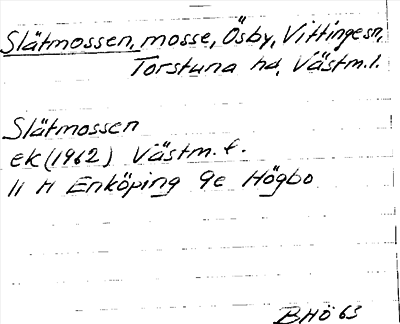 Slätmossen, mosse, Ösby, Vittinge sn,
Torstuna hd, Västm. l.
Slätmossen
ek (1962) Västm. f.
11 H Enköping 9e Högbo
BHÖ 63